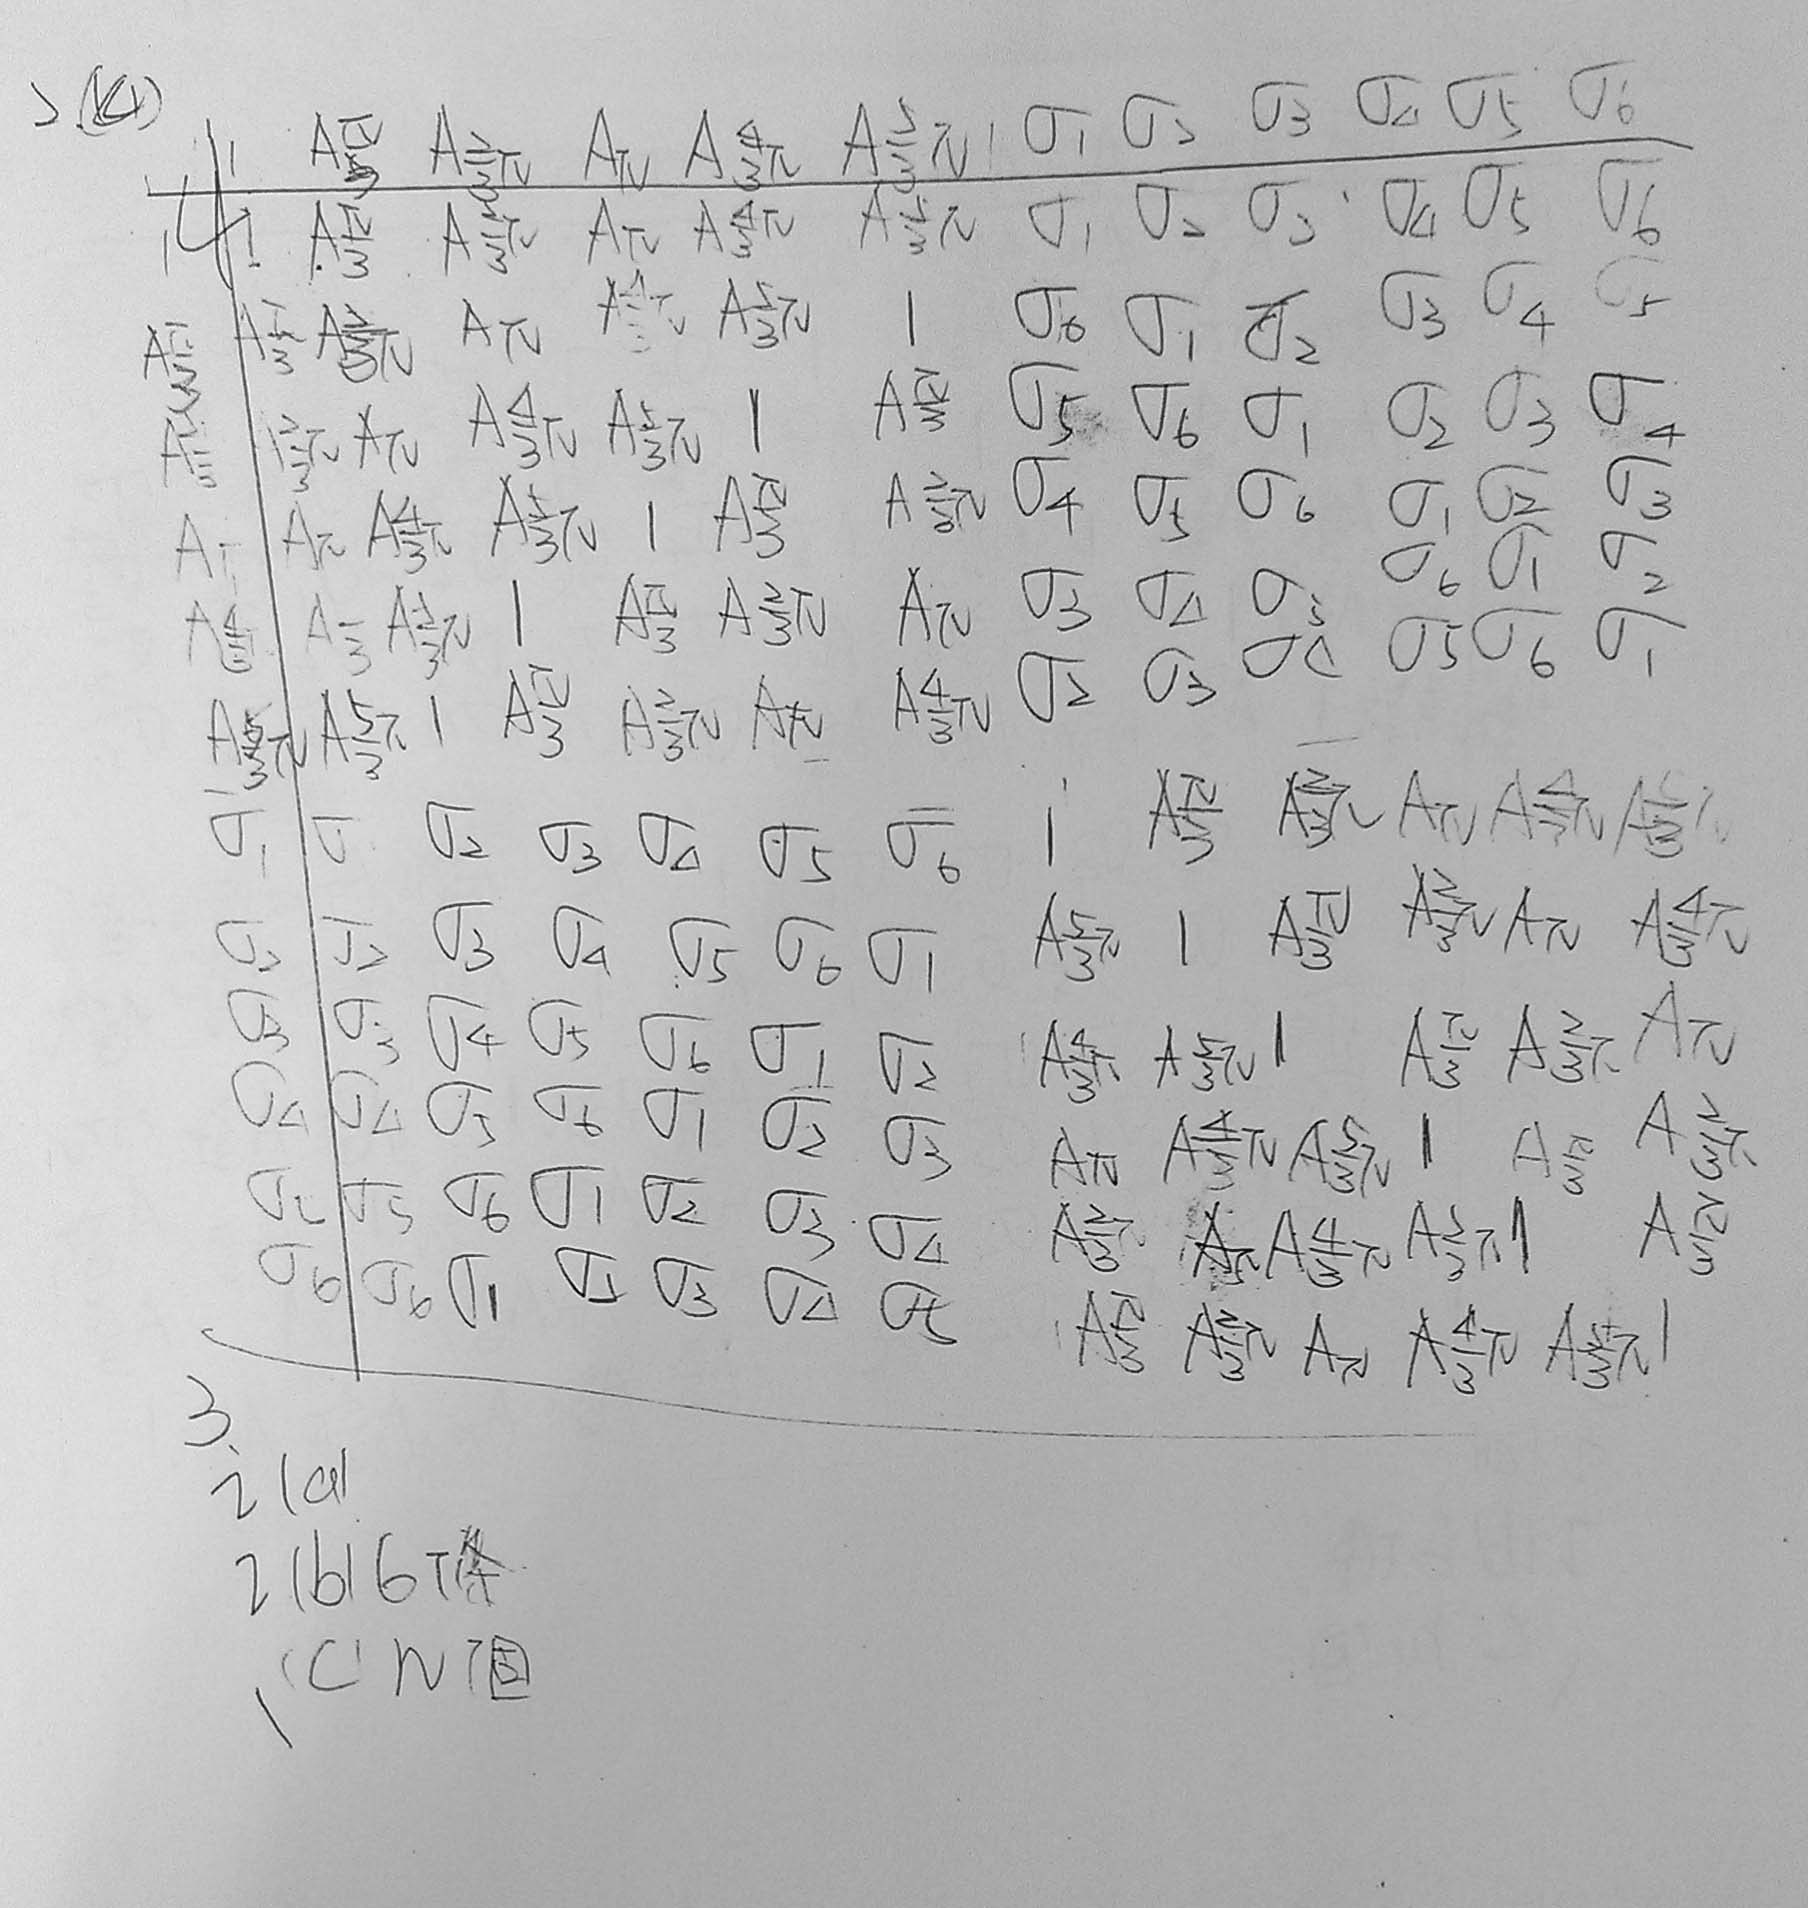 2(a)
1 A π/3 A 2/3π Aπ A 4/3π A 5/3π σ1 σ2 σ3 σ4 σ5 σ6
1 1 A π/3 A 2/3π Aπ A 4/3π A 5/3π σ1 σ2 σ3 σ4 σ5 σ6
A π/3 A π/3 A 2/3π Aπ A 4/3π A 5/3π 1 σ6 σ1 σ2 σ3 σ4 σ5
A 2/3π Aπ A 4/3π A 5/3π 1 A π/3 σ5 σ6 σ1 σ2 σ3 σ4
Aπ Aπ A 4/3π A 5/3π 1 A π/3 A 2/3π σ4 σ5 σ6 σ1 σ2 σ3
A 4/3 A 5/3π 1 A π/3 A 2/3π Aπ σ3 σ4 σ3 σ6 σ1 σ2
A 5/3π A 5/3π 1 A π/3 A 2/3π Aπ A 4/3π σ2 σ3 σ4 σ5 σ6 σ1
σ1 σ σ2 σ3 σ4 σ5 σ6 1 A π/3 A 2/3π Aπ A 4/3π A 5/3π
σ2 σ2 σ3 σ4 σ5 σ6 σ1 A 5/3π 1 A π/3 A 2/3π Aπ A 4/3π
σ3 σ3 σ4 σ5 σ6 σ1 σ2 A 4/3π A 5/3π 1 A π/3 A 2/3π Aπ
σ4 σ4 σ5 σ6 σ1 σ2 σ3 Aπ A 4/3π A 5/3π 1 A π/3 A 2/3π
σ5 σ5 σ6 σ1 σ2 σ3 σ4 A 2/3π Aπ A 4/3π A 5/3π 1 A π/3
σ6 σ6 σ1 σ2 σ3 σ4 σ5 A π/3 A 2/3π Aπ A 4/3π A 5/3π 1
3.
2(a)
2(b) 6个
(c) n個